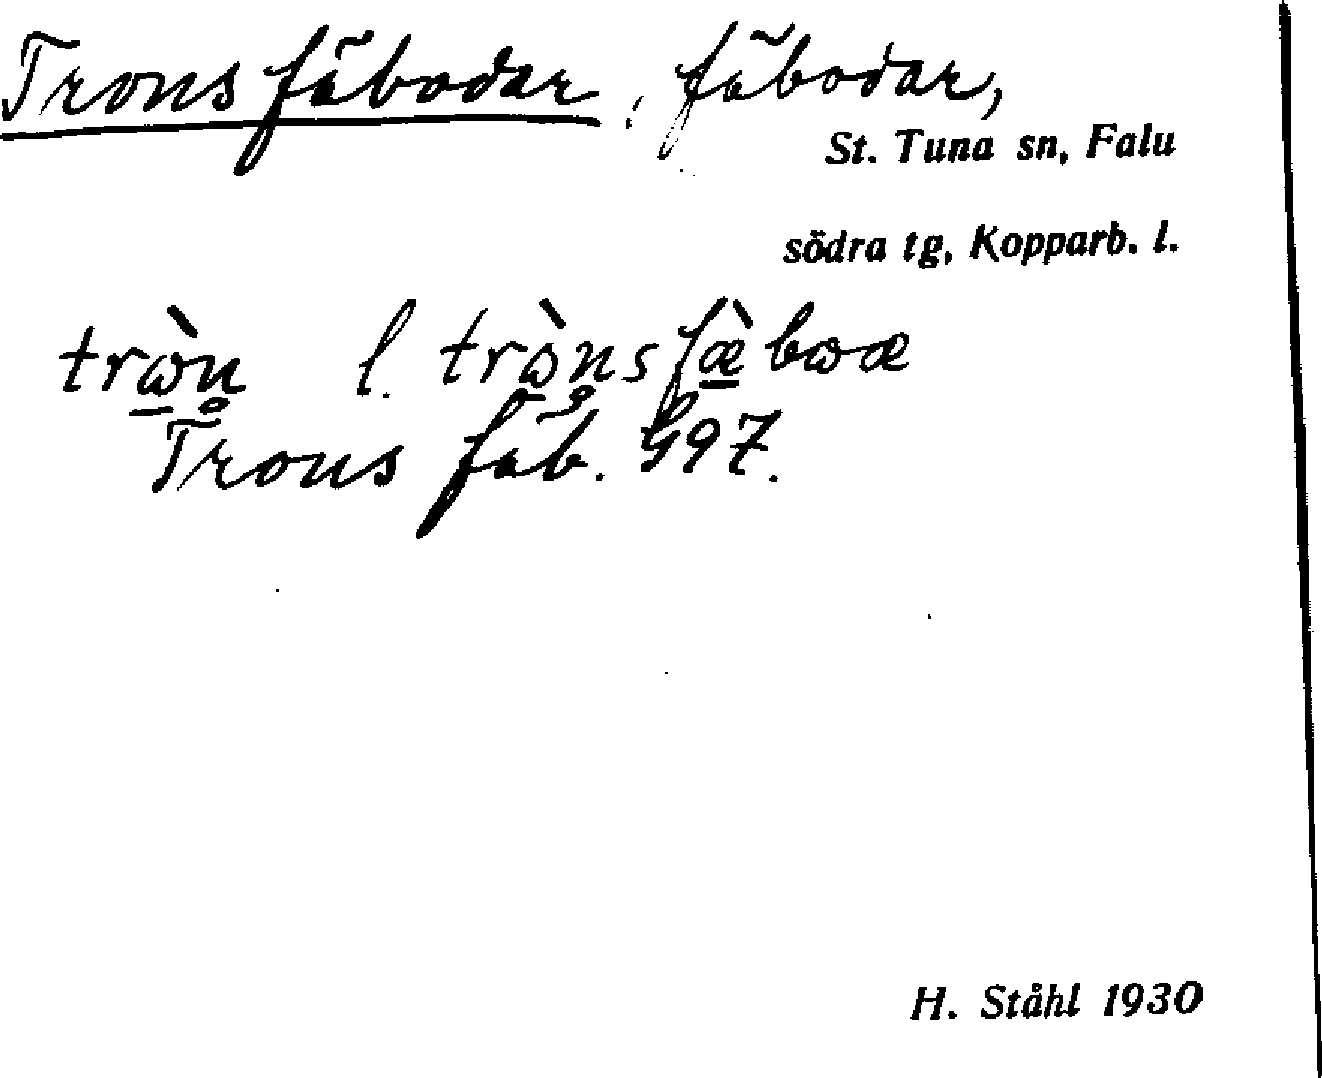 Trons fäbodar, fäbodar,
St. Tuna sn, Falu
södra tg, Kopparb. l.
trὼ̲n̥ l. trὼ̲n̥sfæ̲̀bωæ
Trons fäb. G97.
H. Ståhl 1930